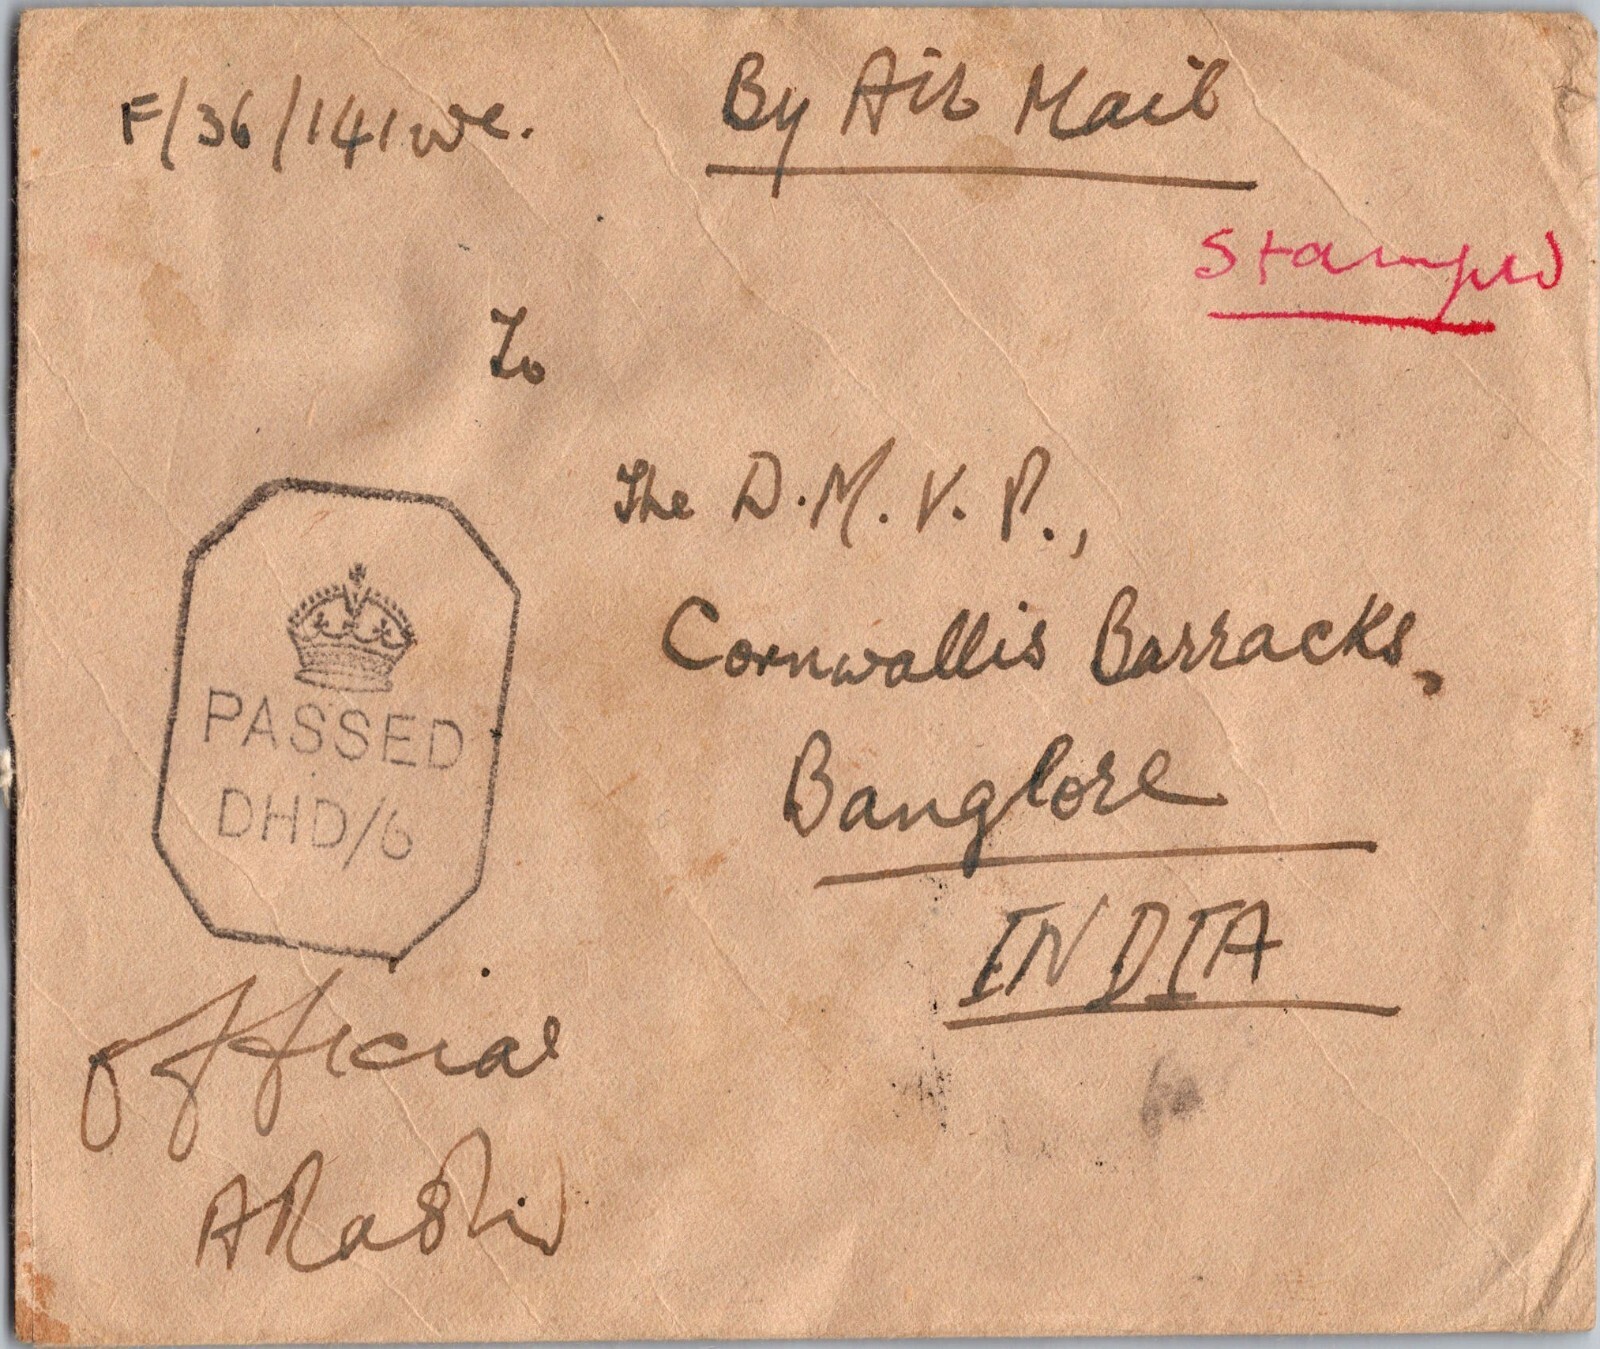 F/36/141 We.
By Air Mail
Stamped
To
The D.M.V.P.,
Cornwallis Barracks,
Banglore
INDIA
PASSED
DHD/6
Official
ARashid